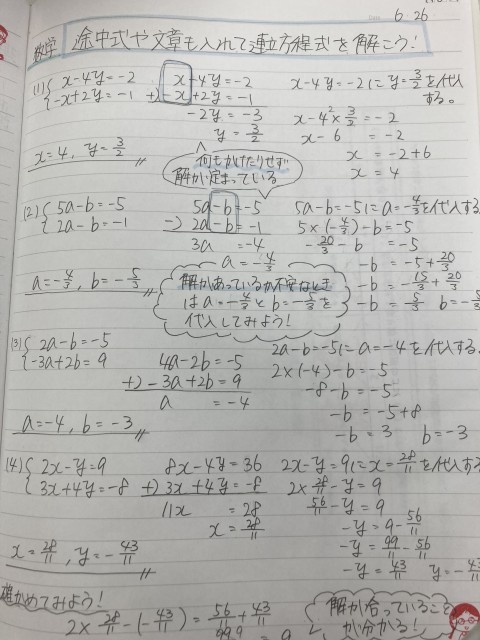 6.26
数学 途中式や文章も入れて連立方程式を解こう!
(1) { x-4y=-2
{ -x+2y=-1
x-4y=-2
+) -x+2y=-1
-2y=-3
y=3/2
x-4y=-2に y=3/2を代入する。
x-4²×3/2=-2
x-6=-2
x=-2+6
x=4
x=4, y=3/2
何もかけたりせず
解が定まっている
(2) { 5a-b=-5
{ 2a-b=-1
5a-b=-5
-) 2a-b=-1
3a=-4
a=-4/3
5a-b=-5に a=-4/3を代入する
5×(-4/3)-b=-5
-20/3-b=-5
-b=-5+20/3
-b=-15/3+20/3
-b=5/3 b=-5/3
a=-4/3, b=-5/3
解があっているか不安なとき
はa=-4/3とb=-5/3を
代入してみよう!
(3) { 2a-b=-5
{ -3a+2b=9
4a-2b=-5
+) -3a+2b=9
a=-4
2a-b=-5に a=-4を代入する。
2×(-4)-b=-5
-8-b=-5
-b=-5+8
-b=3 b=-3
a=-4, b=-3
(4) { 2x-y=9
{ 3x+4y=-8
8x-4y=36
+) 3x+4y=-8
11x=28
x=28/11
2x-y=9に x=28/11を代入する
2×28/11-y=9
56/11-y=9
-y=9-56/11
-y=99/11-56/11
-y=43/11 y=-43/11
x=28/11, y=-43/11
確かめてみよう!
2×28/11-(-43/11)=56/11+43/11
解が合っていること
が分かる!